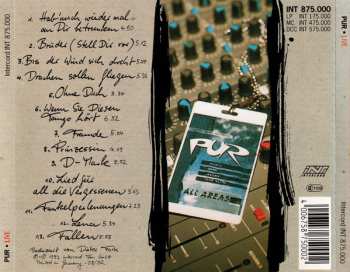 Intercord INT 875.000
1. Hab' mich wieder mal
an Dir betrunken 4:50
2. Brüder (Stell Dir vor) 5:12
3. Bis der Wind sich dreht 5:31
4. Drachen sollen fliegen 5:32
5. Ohne Dich 5:39
6. Wenn Sie Diesen
Tango hört 6:32
7. Freunde 5:04
8. Prinzessin
9. D-Mark 3:52
10. Lied für
all die Vergessenen
11. Funkelperlenaugen
12. Lena
13. Fallen
INT 875.000
LP INT 175.000
MC INT 475.000
DCC INT 575.000
PUR
LIVE
ALL AREAS
INT
PUR • LIVE
Intercord INT 875.000
PUR • LIVE
Intercord INT 875.000
4 006758 750002